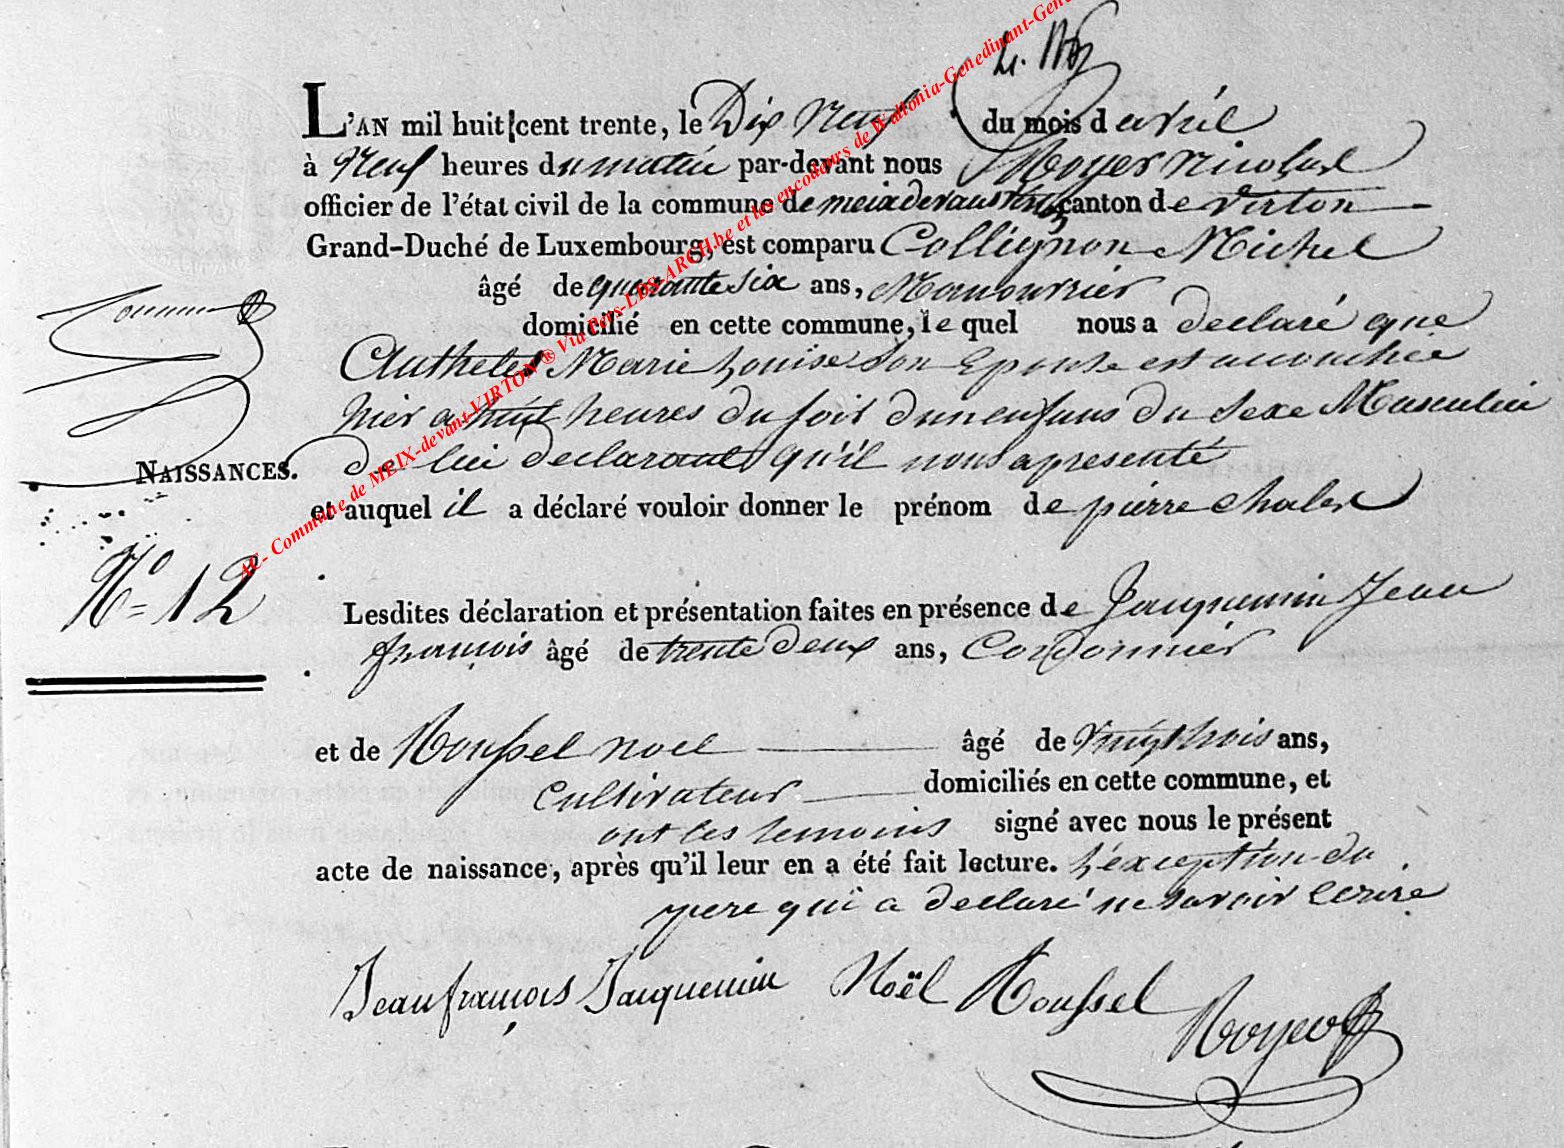 L'AN mil huit cent trente, le Dix Neuf du mois d avril
à Neuf heures du matin par-devant nous Royer Nicolas
officier de l'état civil de la commune de meix devant Virton canton de Virton
Grand-Duché de Luxembourg, est comparu Collignon Michel
âgé de quarante six ans, Manouvrier
domicilié en cette commune, le quel nous a declaré que
Marie Louise Son Epouse est accouchée
hier a huit heures du soir dun enfans du Sexe Masculin
de lui declarant qu'il nous a presenté
NAISSANCES.
et auquel il a déclaré vouloir donner le prénom de pierre charles
N° 12
Lesdites déclaration et présentation faites en présence de Jacquemin Jean
françois âgé de trente deux ans, Cordonnier
et de Roussel noel âgé de Vingt trois ans,
Cultivateur domiciliés en cette commune, et
ont les temoins signé avec nous le présent
acte de naissance, après qu'il leur en a été fait lecture. L'exception du
pere qui a declaré ne savoir Ecrire
Jean françois Jacquemin Noël Roussel
Royer
AC- Commune de MEIX-devant-VIRTON ® Via Pers-LDS-ARCH.be et les encodeurs de Wallonia-Genedinant-Gene